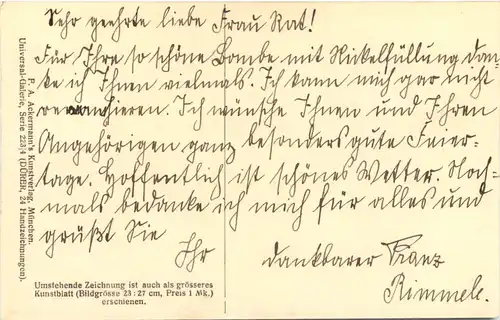 Sehr geehrte liebe Frau Rat!
Für Ihre so schöne Bombe mit Nickelfüllung dan-
ke ich Ihnen vielmals. Ich kann mich gar nicht
revanchieren. Ich wünsche Ihnen und Ihren
Angehörigen ganz besonders gute Feier-
tage. Hoffentlich ist schönes Wetter. Noch-
mals bedanke ich mich für alles und
grüßt Sie
Ihr dankbarer Franz
Rimmele.
P. A. Ackermann's Kunstverlag, München.
Universal-Galerie, Serie 223/4 (DÜRER, 24 Handzeichnungen).
Umstehende Zeichnung ist auch als grösseres
Kunstblatt (Bildgrösse 23:27 cm, Preis 1 Mk.)
erschienen.